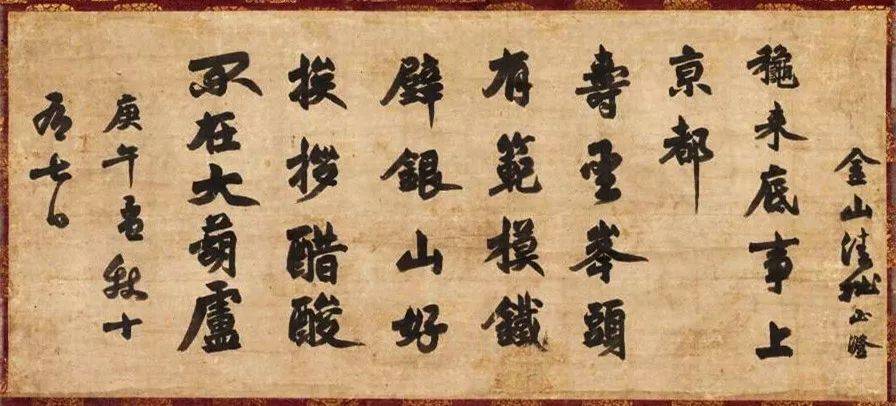 金山清拙正澄
穐来底事上
亰都
壽峯頭
有範模鐵
壁銀山好
挨拶醋酸
不在大葫蘆
庚午孟秋十
有七日